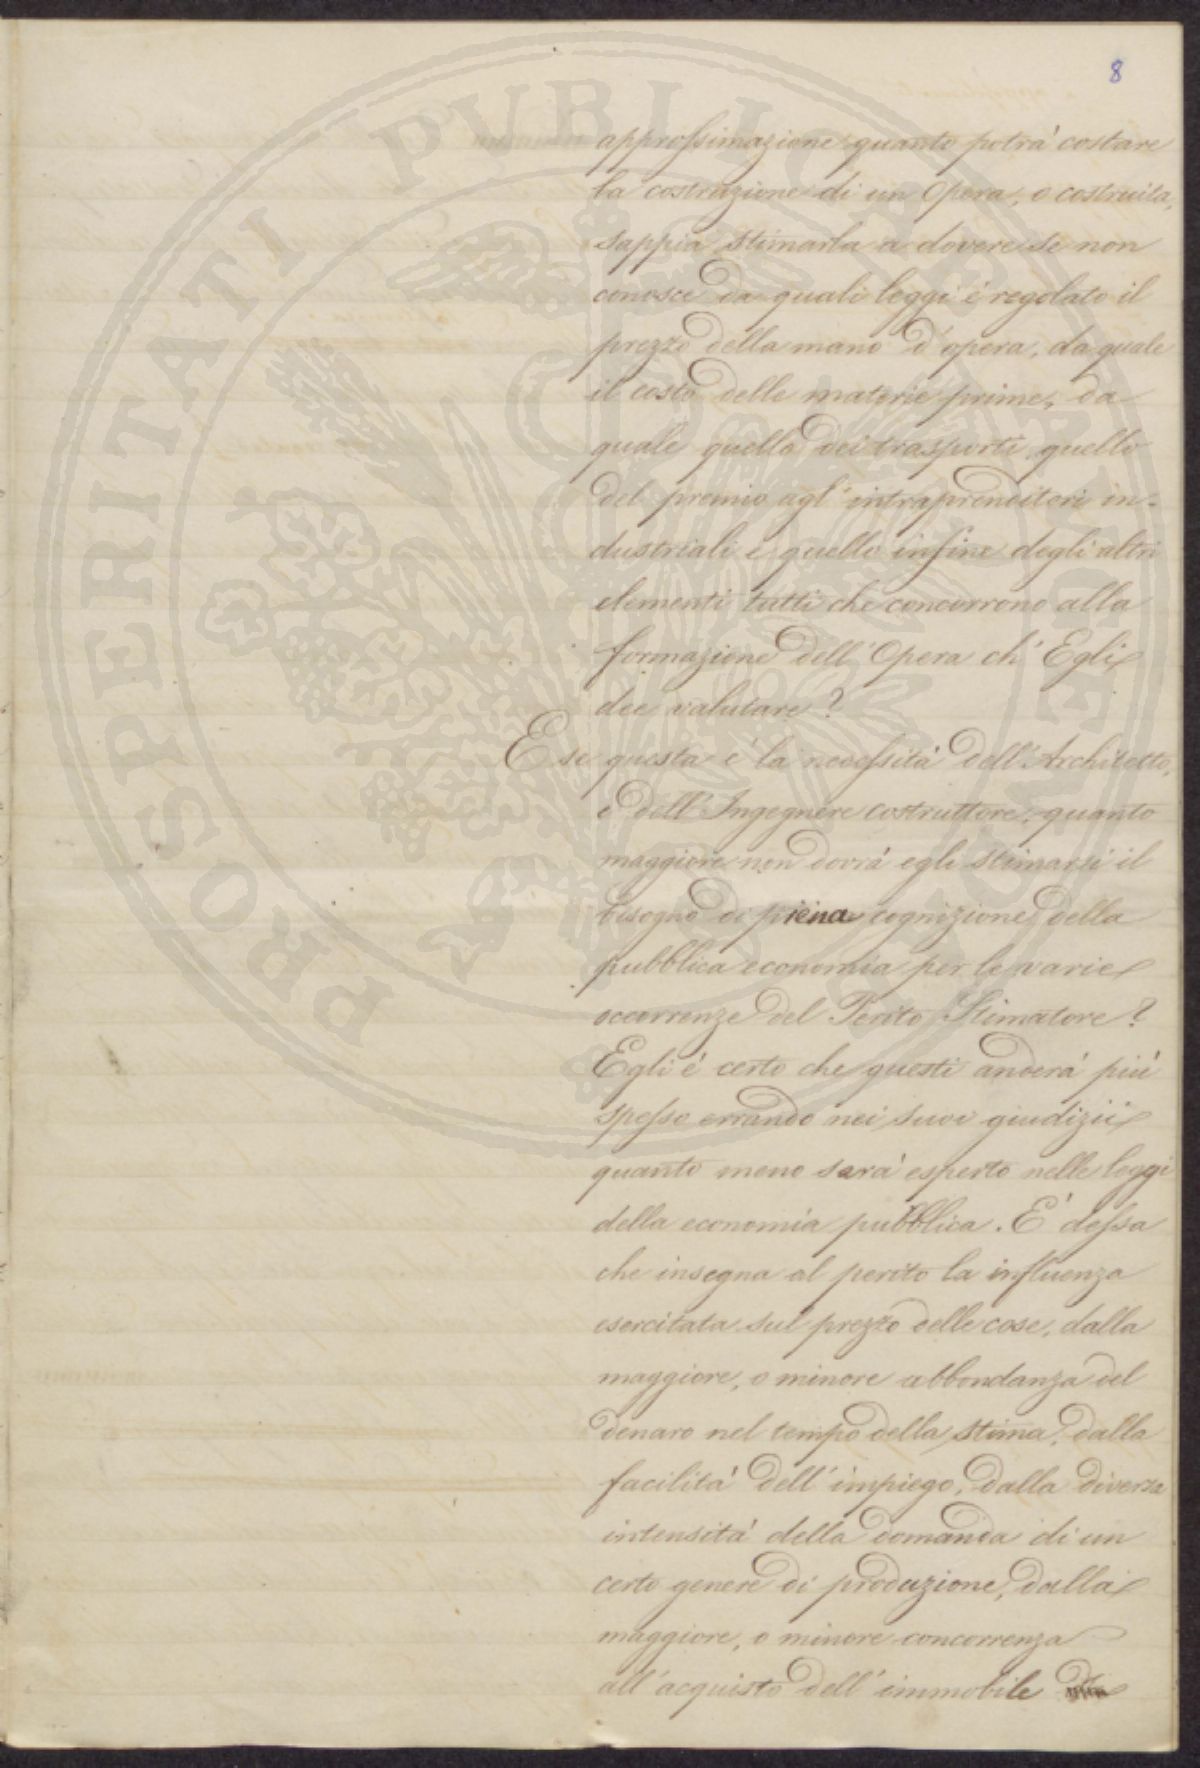 8
approssimazione quanto potrà costare
la costruzione di un Opera, o costruita,
sappia stimarla a dovere se non
conosce da quali leggi è regolato il
prezzo della mano d'opera, da quale
il costo delle materie prime, da
quale quello dei trasporti, quello
del premio agl'intraprenditori in-
dustriali e quello infine degli altri
elementi tutti che concorrono alla
formazione dell'Opera ch'Egli
dee valutare?
E se questa è la necessità dell'Architetto,
e dell'Ingegnere costruttore, quanto
maggiore non dovrà egli stimarsi il
bisogno di piena cognizione della
pubblica economia per le varie
occorrenze del Perito Stimatore?
Egli è certo che questi anderà più
spesso errando nei suoi giudizii
quanto meno sarà esperto nelle leggi
della economia pubblica. E' dessa
che insegna al perito la influenza
esercitata sul prezzo delle cose, dalla
maggiore, o minore abbondanza del
denaro nel tempo della stima, dalla
facilità dell'impiego, dalla diversa
intensità della domanda di un
certo genere di produzione, dalla
maggiore, o minore concorrenza
all'acquisto dell'immobile
PROSPERITATI PVBLICAE AVGENDAE